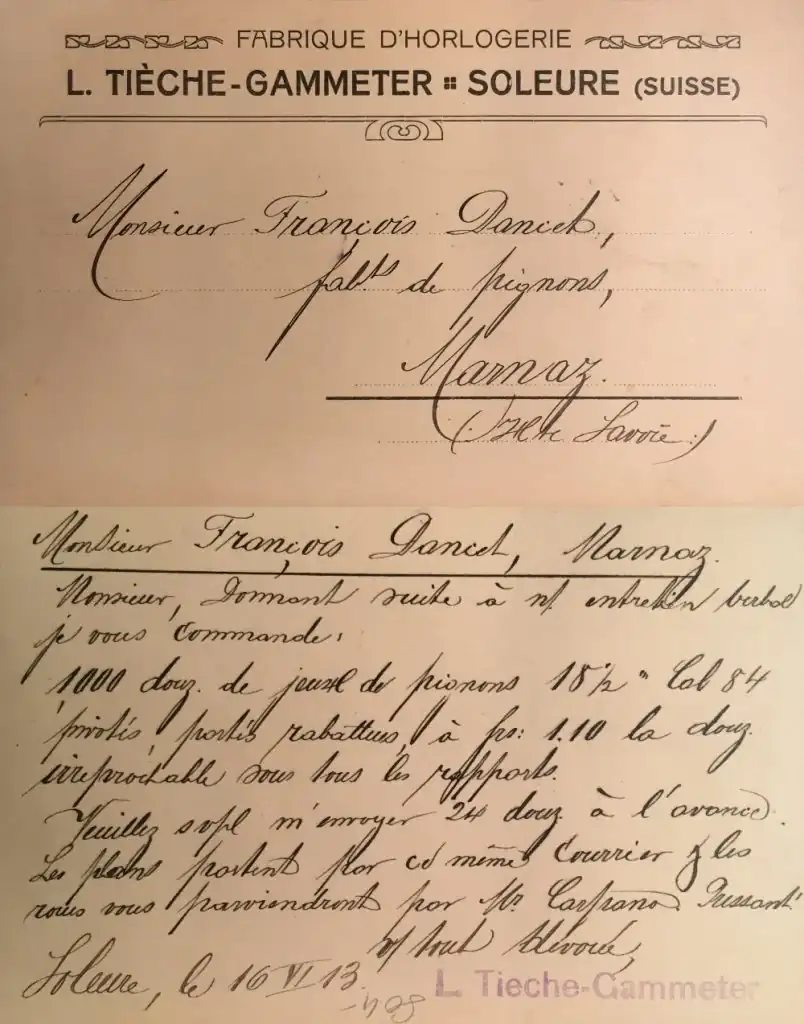 FABRIQUE D'HORLOGERIE
L. TIÈCHE-GAMMETER SOLEURE (SUISSE)
Monsieur François Dancet,
fabts de pignons,
Marnaz.
(Hte Savoie.)
Monsieur François Dancet, Marnaz.
Monsieur, Donnant suite à n/ entretien verbal
je vous commande:
1000 douz. de jeux de pignons 18½ " Cal 84
pivotés, portés rabattues, à frs: 1.10 la douz.
irréprochable sous tous les rapports.
Veuillez svpl m'envoyer 24 douz. à l'avance.
Les plans partent par ce même courrier & les
roues vous parviendront par Mr.
v/ tout dévoué,
Soleure, le 16 VI 13.
L. Tieche-Gammeter